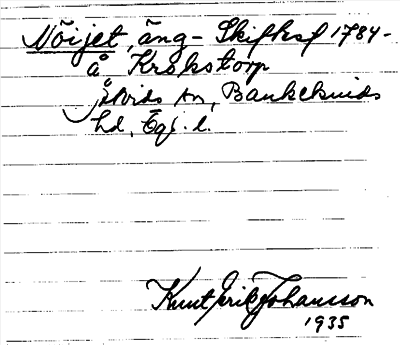 Nöijet, äng - Skifksf 1784 -
å Krokstorp
Åtvids sn, Bankekinds
hd, Ögl. l.
Knut Erik Johansson
1935